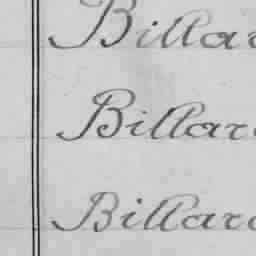 Billar
Billar
Billar